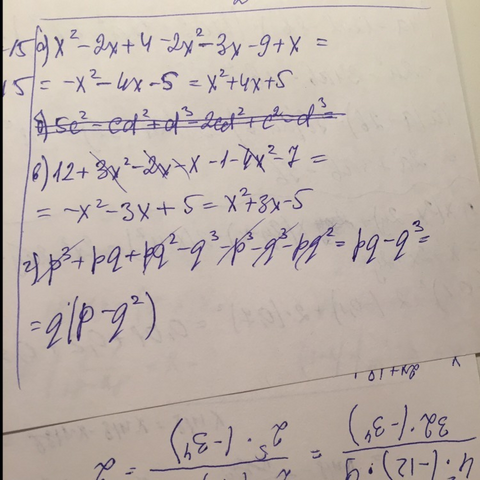 -15 а) x² - 2x + 4 - 2x² - 3x - 9 + x =
15 = -x² - 4x - 5 = x² + 4x + 5
б) 5c² - cd² + d³ - 2cd² + c² - d³ =
в) 12 + 3x² - 2x - x - 1 - 4x² - 7 =
= -x² - 3x + 5 = x² + 3x - 5
г) p³ + pq + pq² - q³ - p³ - q³ - pq² = pq - q³ =
= q(p - q²)
2x+10.
4 · (-12) · 9
32 · (-3⁴)
=
2⁵ · (-3⁴)
= 2